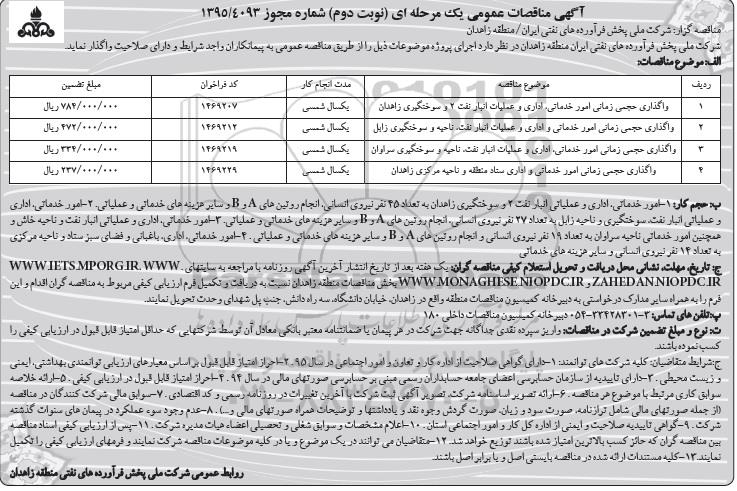 آگهی مناقصات عمومی یک مرحله ای (نوبت دوم) شماره مجوز ١٣٩٥/٤٠٩٣
مناقصه گزار: شرکت ملی پخش فرآورده های نفتی ایران/ منطقه زاهدان
شرکت ملی پخش فرآورده های نفتی ایران منطقه زاهدان در نظر دارد اجرای پروژه موضوعات ذیل را از طریق مناقصه عمومی به پیمانکاران واجد شرایط و دارای صلاحیت واگذار نماید.
الف: موضوع مناقصات:
ردیف موضوع مناقصه مدت انجام کار کد فراخوان مبلغ تضمین
١ واگذاری حجمی زمانی امور خدماتی، اداری و عملیات انبار نفت ٢ و سوختگیری زاهدان یکسال شمسی ١٤٦٩٢٠٧ ٧٨٤/٠٠٠/٠٠٠ ریال
٢ واگذاری حجمی زمانی امور خدماتی و اداری و عملیات انبار نفت، ناحیه و سوختگیری زابل یکسال شمسی ١٤٦٩٢١٢ ٤٧٢/٠٠٠/٠٠٠ ریال
٣ واگذاری حجمی زمانی امور خدماتی، اداری و عملیات انبار نفت، ناحیه و سوختگیری سراوان یکسال شمسی ١٤٦٩٢١٩ ٣٣٤/٠٠٠/٠٠٠ ریال
٤ واگذاری حجمی زمانی امور خدماتی و اداری ستاد منطقه و ناحیه مرکزی زاهدان یکسال شمسی ١٤٦٩٢٢٩ ٢٣٧/٠٠٠/٠٠٠ ریال
ب: حجم کار: ١-امور خدماتی، اداری و عملیاتی انبار نفت ٢ و سوختگیری زاهدان به تعداد ٤٥ نفر نیروی انسانی، انجام روتین های A و B و سایر هزینه های خدماتی و عملیاتی. ٢-امور خدماتی، اداری
و عملیاتی انبار نفت، سوختگیری و ناحیه زابل به تعداد ٢٧ نفر نیروی انسانی، انجام روتین های A و B و سایر هزینه های خدماتی و عملیاتی. ٣-امور خدماتی، اداری و عملیاتی انبار نفت و ناحیه خاش و
همچنین امور خدماتی ناحیه سراوان به تعداد ١٩ نفر نیروی انسانی و انجام روتین های A و B و سایر هزینه های خدماتی و عملیاتی. ٤-امور خدماتی، اداری، باغبانی و فضای سبز ستاد و ناحیه مرکزی
به تعداد ١٤ نفر نیروی انسانی و سایر هزینه های خدماتی
ج: تاریخ، مهلت، نشانی محل دریافت و تحویل استعلام کیفی مناقصه گران: یک هفته بعد از تاریخ انتشار آخرین آگهی روزنامه با مراجعه به سایتهای WWW.IETS.MPORG.IR. WWW.
ZAHEDAN.NIOPDC.IR و WWW.MONAGHESE.NIOPDC.IR بخش مناقصات منطقه زاهدان نسبت به دریافت و تکمیل فرم ارزیابی کیفی مربوط به مناقصه گران اقدام و این
فرم را به همراه سایر مدارک درخواستی به دبیرخانه کمیسیون مناقصات منطقه واقع در زاهدان، خیابان دانشگاه، سه راه دانش، جنب پل شهدای وحدت تحویل نمایند.
پ: تلفن های تماس: ٣-٠٥٤-٣٣٤٢٨٣٠١ دبیرخانه کمیسیون مناقصات داخلی ١٨٠
ت: نوع و مبلغ تضمین شرکت در مناقصات: واریز سپرده نقدی جداگانه جهت شرکت در هر پیمان یا ضمانتنامه معتبر بانکی معادل آن توسط شرکتهایی که حداقل امتیاز قابل قبول در ارزیابی کیفی را
کسب نموده باشند.
ج: شرایط متقاضیان: کلیه شرکت های توانمند: ١-دارای گواهی صلاحیت از اداره کار و تعاون و امور اجتماعی در سال ٩٥. ٢-احراز امتیاز قابل قبول بر اساس معیارهای ارزیابی توانمندی بهداشتی، ایمنی
و زیست محیطی. ٣-دارای تاییدیه از سازمان حسابرسی اعضای جامعه حسابداران رسمی مبنی بر حسابرسی صورتهای مالی در سال ٩٤. ٤-احراز امتیاز قابل قبول در ارزیابی کیفی. ٥-ارائه خلاصه
سوابق کاری مرتبط با موضوع هر مناقصه. ٦-ارائه تصویر اساسنامه شرکت، تصویر آگهی ثبت شرکت با آخرین تغییرات در روزنامه رسمی و کد اقتصادی. ٧-سوابق مالی شرکت کنندگان در مناقصه
(از جمله صورتهای مالی شامل ترازنامه، صورت سود و زیان، صورت گردش وجوه نقد و یادداشتها و توضیحات همراه صورتهای مالی و...). ٨-عدم وجود سوء عملکرد در پیمان های سنوات گذشته
شرکت. ٩-گواهی تاییدیه صلاحیت و ایمنی از اداره کل کار و امور اجتماعی استان. ١٠-اعلام مشخصات و سوابق شغلی و تحصیلی اعضاء هیات مدیره شرکت. ١١-پس از ارزیابی کیفی اسناد مناقصه
بین مناقصه گران که حائز کسب بالاترین امتیاز شده باشند توزیع خواهد شد. ١٢-متقاضیان می توانند در یک موضوع و یا در کلیه موضوعات مناقصه شرکت نمایند و فرمهای ارزیابی کیفی را تکمیل
نمایند. ١٣-کلیه مستندات ارائه شده در مناقصه بایستی اصل و یا برابر اصل باشند.
روابط عمومی شرکت ملی پخش فرآورده های نفتی منطقه زاهدان